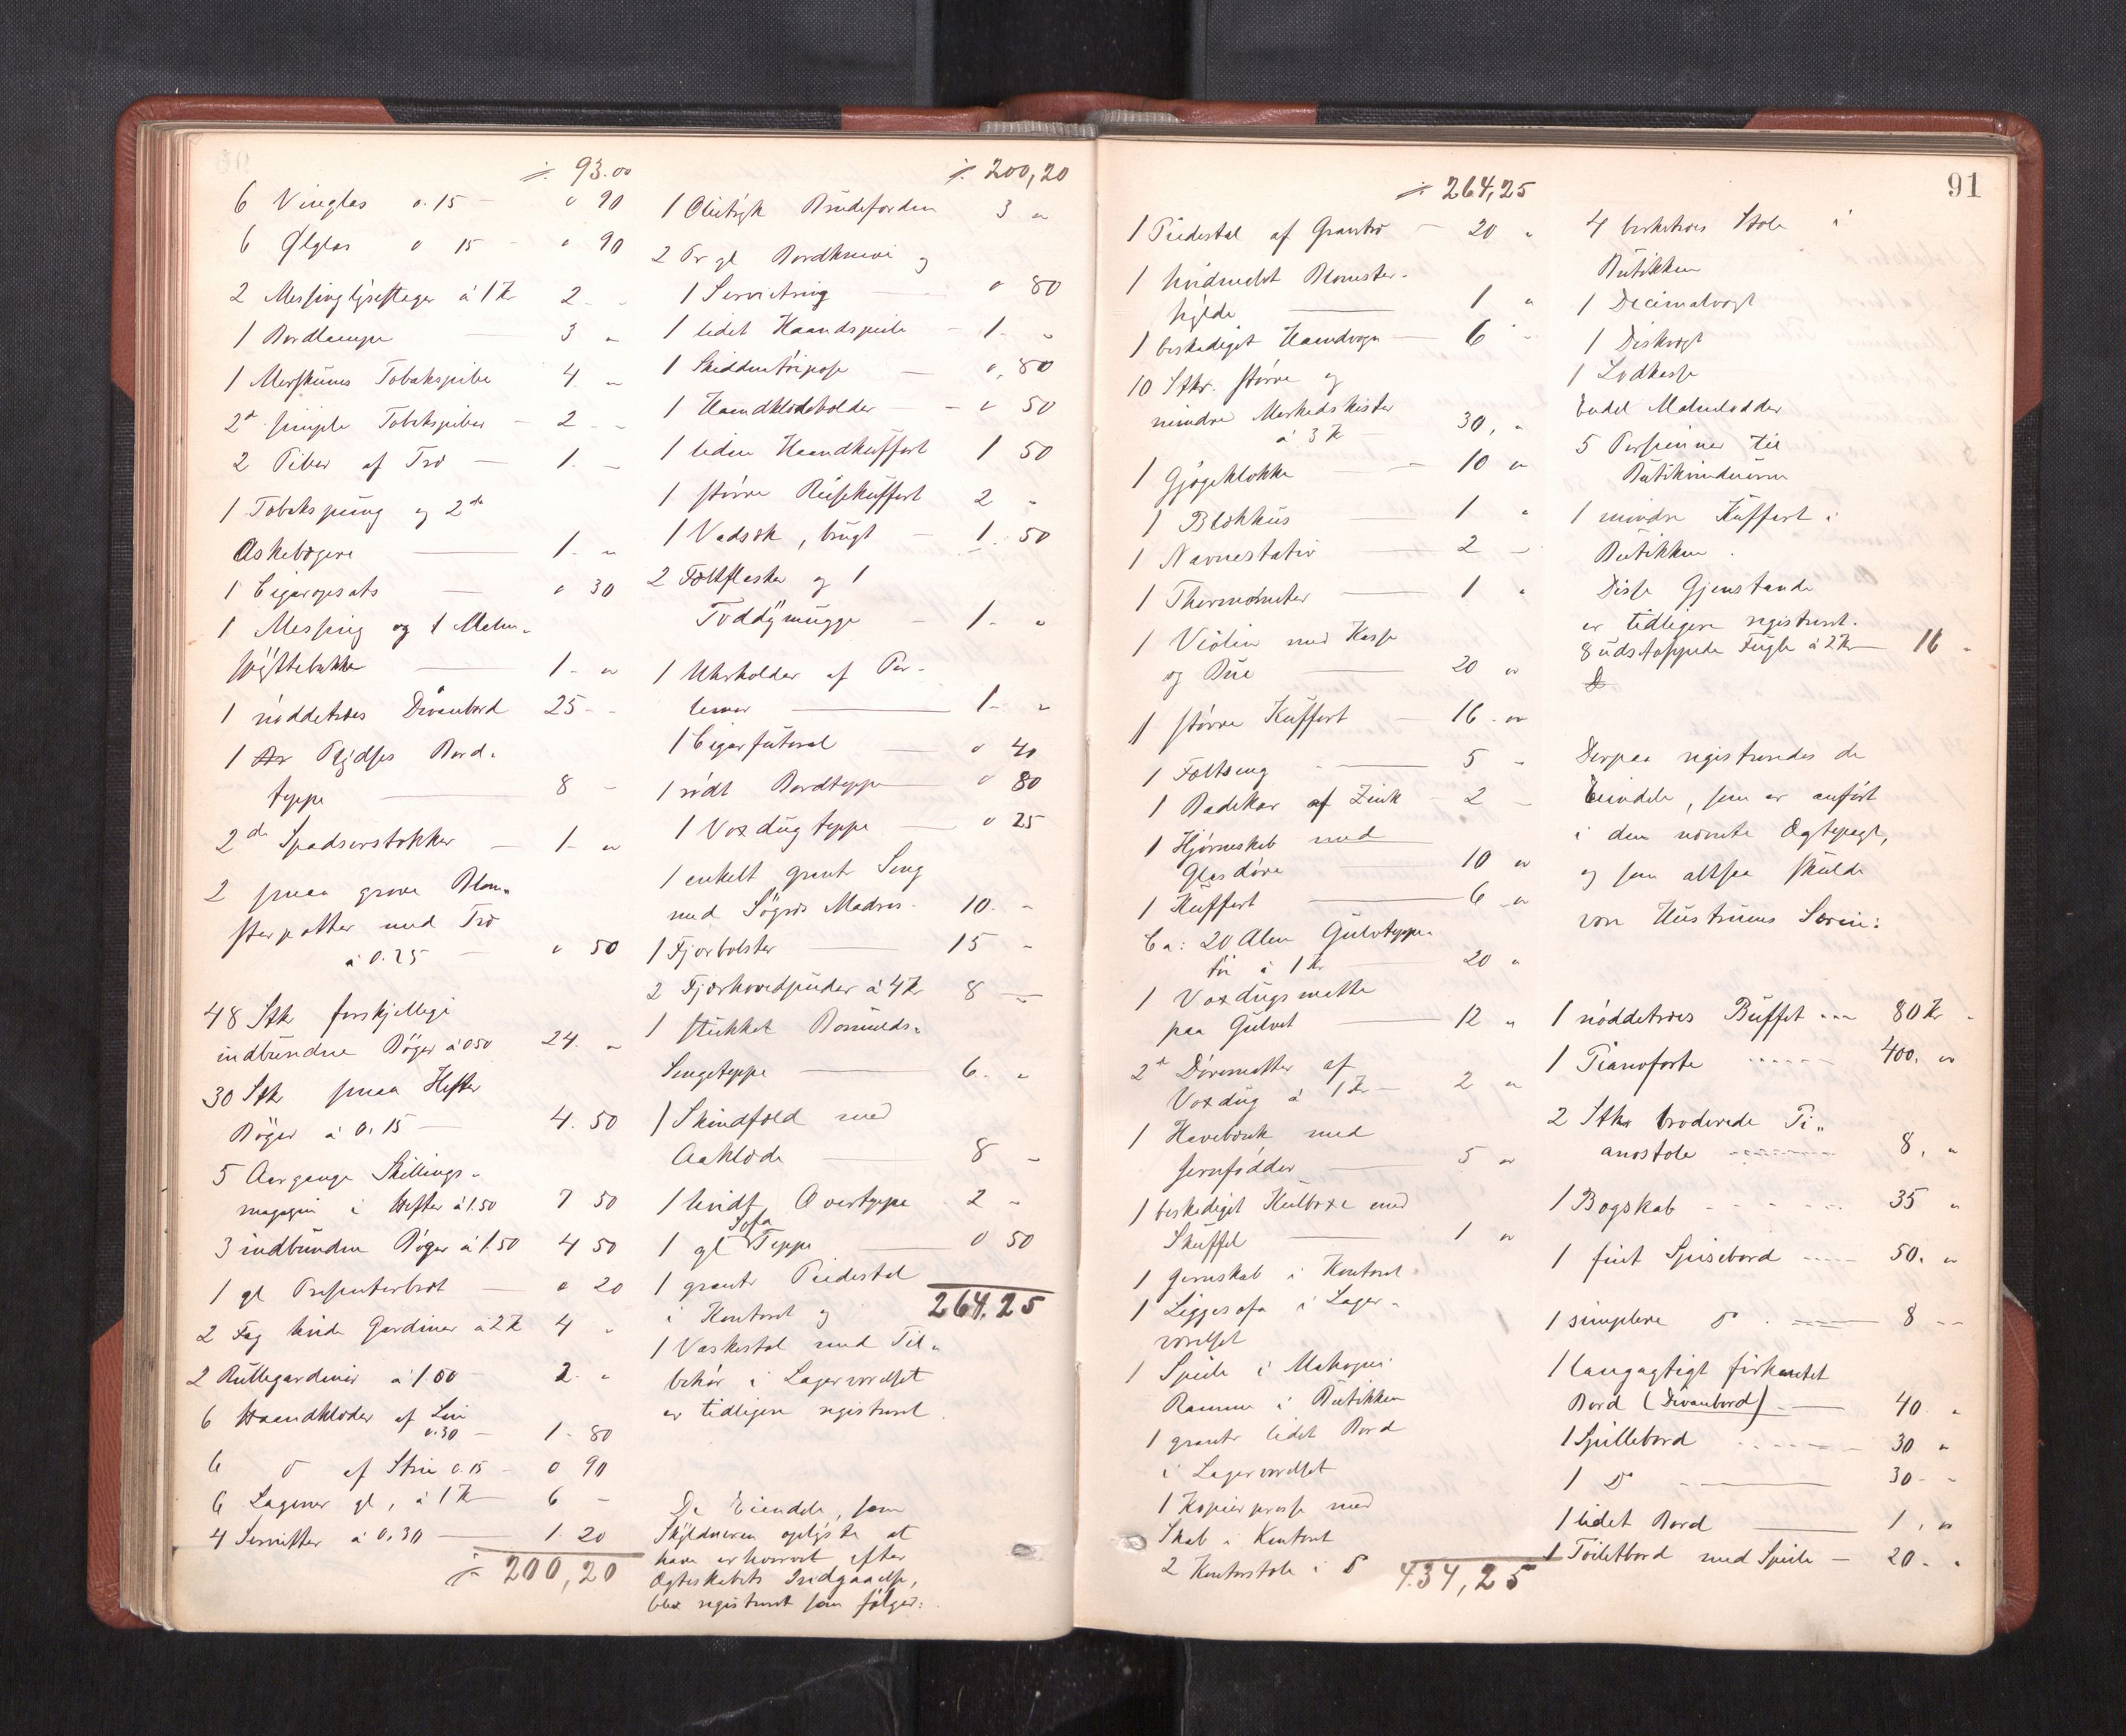 ÷ 93.00
6 Vinglas a. 15 – " 90
6 Ølglas a 15 – " 90
2 Messinglysestager à 1 Kr 2 - "
1 Bordlampe 3 "
1 Merskums Tobakspibe 4 "
2de simple Tobakspiber – 2 - "
2 Piber af Træ — 1. "
1 Tobakspung og 2de
Askebægere — 1. "
1 Cigaropsats — " 30
1 Messing og 1 Malm-
spyttebakke — 1 - "
1 nøddetræes Divanbord 25 - "
1 Plydses Bord-
teppe — 8 -
2de Spadserstokker – 1 - "
2 smaa grove Blom-
sterpotter med Træ
à 0.25 – " 50
48 Stk forskjellige
indbundne Bøger à 050 24. "
30 Stk smaa Hefter
Bøger à 0.15 — 4. 50
5 Aargange Skillings-
magazin i Hefter à 1.50 7 50
3 indbundne Bøger à 1.50 4 50
1 gl Presenterbræt — " 20
2 Fag hvide Gardiner à 2 Kr 4 "
2 Rullegardiner à 1.00 – 2. "
6 Haandklæder af Lin
0.30 – 1. 80
6 do af Strie 0.15 – 0 90
6 Lagener gl, à 1 Kr – 6 –
4 Servietter à 0.30 — 1. 20
÷ 200,20
÷ 200,20
1 Oletryk Brudefærden 3 "
2 Pr gl Bordknive og
1 Servietring — " 80
1 lidet Haandspeile – 1. "
1 Skiddentøipose — ", 80
1 Haandklædeholder — " 50
1 liden Haandkuffert 1 50
1 større Reisekuffert 2 "
1 Vadsæk, brugt – 1. 50
2 Feltflasker og 1
Toddymugge – 1. "
1 Uhrholder af Per-
lemor — 1. "
1 Cigarfuteral — " 40
1 rødt Bordteppe — " 80
1 Voxdugteppe — " 25
1 enkelt grønt Seng
med Søgræs Madras. 10. "
1 Fjærbolster — 15 "
2 Fjærhovedpuder à 4 Kr 8 —
1 stukket Bomulds-
Sengeteppe — 6. "
1 Skindfæld med
Aaklæde — 8 –
1 hvidt Overteppe 2 –
1 gl Sofa Teppe — 0 50
264,25
1 grønt Piedestal
i Kontoret og
1 Vaskestol med Til-
behør i Lagerværelset
er tidligere registreret.
De Eiendele, som
Skyldneren oplyste at
have erhvervet efter
Ægteskabets Indgaaelse,
blev registreret som følger:
91
÷ 264,25
1 Piedestal af Grantræ – 20 "
1 hvidmalet Blomster-
hylde — 1 "
1 beskadiget Haandvogn — 6 "
10 Stkr. større og
mindre Markedskister
à 3 Kr – 30, "
1 Gjøgeklokke — 10 "
1 Blækhus — 1 "
1 Navnestativ — 2 –
1 Thermometer — 1 "
1 Violin med Kasse
og Bue — 20 "
1 større Kuffert – 16 - "
1 Feltseng — 5 –
1 Badekar af Zink – 2 –
1 Hjørneskab med
Glasdøre — 10 "
1 Kuffert — 6 "
Ca: 20 Alen Gulvteppe-
tøi à 1 Kr — 20 "
1 Voxdugsmatte
paa Gulvet — 12 "
2de Dørematter af
Voxdug à 1 Kr — 2 "
1 Havebænk med
Jernfødder — 5 "
1 beskadiget Kulboxe med
Skuffel — 1 "
1 Jernskab i Kontoret
1 Liggesofa i Lager-
værelset
1 Speile i Mahogni
Ramme i Butikken
1 grønt lidet Bord
i Lagerværelset
1 Kopierpresse med
Skab i Kontoret
2 Kontorstole i do
434,25
4 birketræes Stole i
Butikken
1 Decimalvægt
1 Diskvægt
1 Lodkasse
Endel Malmlodder
5 Persienner til
Butikvinduerne
1 mindre Kuffert i
Butikken.
Disse Gjenstande
er tidligere registreret.
8 udstoppede Fugle à 2 Kr — 16 "
Derpaa registreredes de
Eiendele, som er anført
i den nævnte Ægtepagt,
og som altsaa skulde
være Hustruens Særeie:
1 nøddetræes Buffet ... 80 Kr -
1 Pianoforte ------ 400. "
2 Stkr broderede Pi-
anostole -------- 8, "
1 Bogskab - - - - - 35 "
1 fint Spisebord ---- 50. "
1 simplere do — 8 --
1 langagtigt firkantet
Bord (Divanbord). — 40. "
1 Spillebord ------ 30 "
1 Do — 30 - -
1 lidet Bord — 1, "
1 Toiletbord med Speile — 20. "